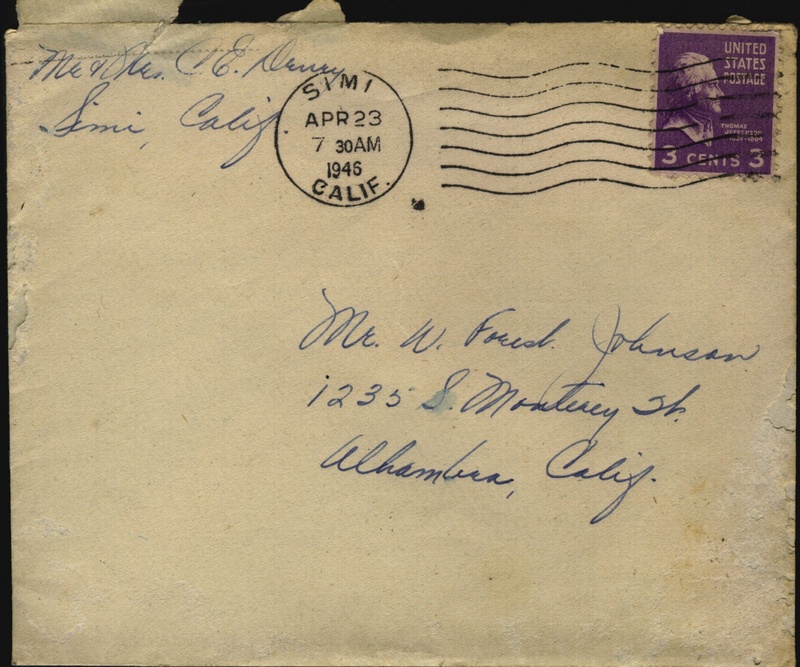 Mr & Mrs. C E. Denny
Simi, Calif.
SIMI
APR 23
7 30AM
1946
CALIF.
UNITED
STATES
POSTAGE
THOMAS
JEFFERSON
3 CENTS 3
Mr. W. Forest Johnson
1235 S. Monterey St.
Alhambra, Calif.